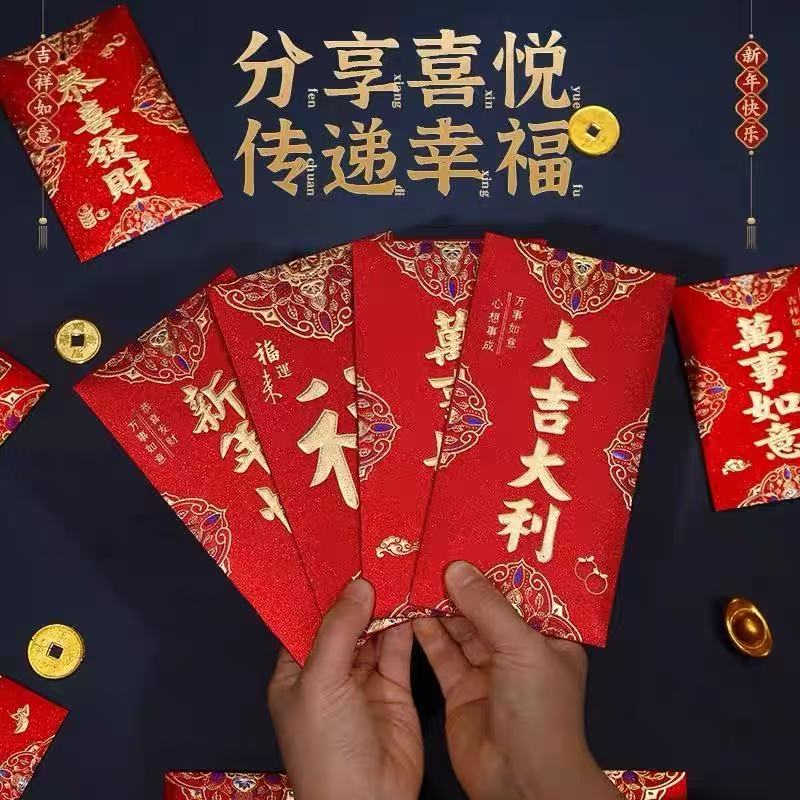 分享喜悦
fen xiang xin yue
传递幸福
chuan di xing fu
吉祥如意
新年快乐
恭喜發財
恭喜发财
万事如意
新年
福運
未
萬事
万事如意
心想事成
大吉大利
萬事如意